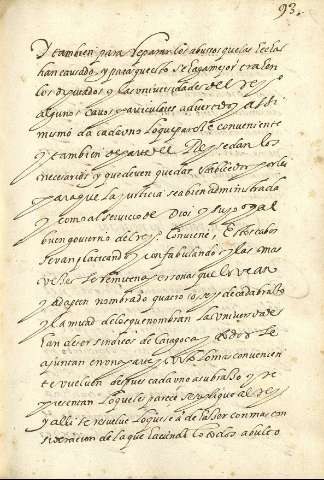 93.
Y tambien para reparar los abussos que las leclas
han causado, y para que esto se haga mejor tratan
los Diputados y las univerçidades del reyº
algunos cavos particulares advierten y assi
mismo da cada uno lo que pareçe conveniente
y tambien de parte del Rey se dan los
necesarios y que deven quedar establecidos por ley
para que la justicia sea bien administrada
y como al servicio de Dios y suyo y al
buen govierno del reyº conviene, Estos cabos
se van placticando y confabulando y las mas
vezes se remiten a personas que los vean
y adapten nombrado quatro o seys de cada braço
y la mitad de los que nombran las Universidades
han de ser sindicos de Caragoça y todos se
ajuntan en una pieça y con la forma convenien
te vuelven despues cada uno a su braço y re
presentan lo que les pareçe se suplique al rey
y alli se resuelve lo que se a de hasser con mas con
sideracion de la que hacen de lo todos a bulto